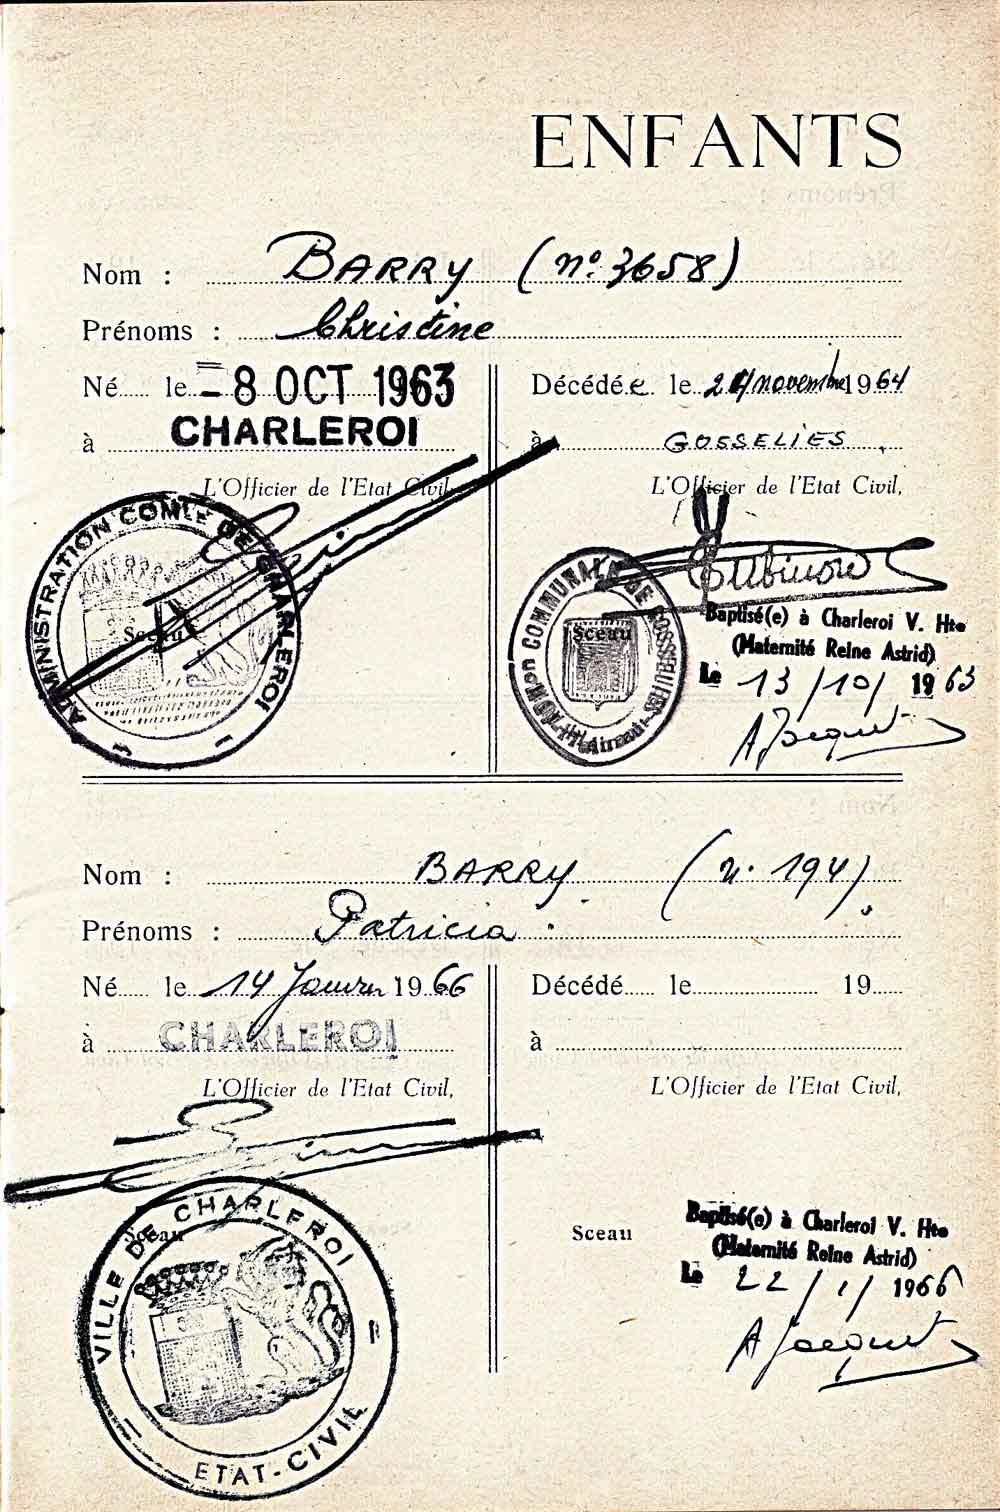 ENFANTS
Nom : BARRY (n° 3658)
Prénoms : Christine
Né le - 8 OCT 1963
à CHARLEROI
L'Officier de l'Etat Civil,
Sceau
ADMINISTRATION COMLE DE CHARLEROI
Décédée le 24 novembre 1964
à GOSSELIES.
L'Officier de l'Etat Civil,
Sceau
COMMUNALE DE GOSSELIES
Baptisé(e) à Charleroi V. Hte
(Maternité Reine Astrid)
Le 13/10/1963
A Jacquet
Nom : BARRY (n° 194).
Prénoms : Patricia.
Né le 14 Janvier 1966
à CHARLEROI
L'Officier de l'Etat Civil,
Sceau
VILLE DE CHARLEROI
ETAT-CIVIL
Décédé le 19
à
L'Officier de l'Etat Civil,
Sceau
Baptisé(e) à Charleroi V. Hte
(Maternité Reine Astrid)
Le 22/1/1966
A Jacquet